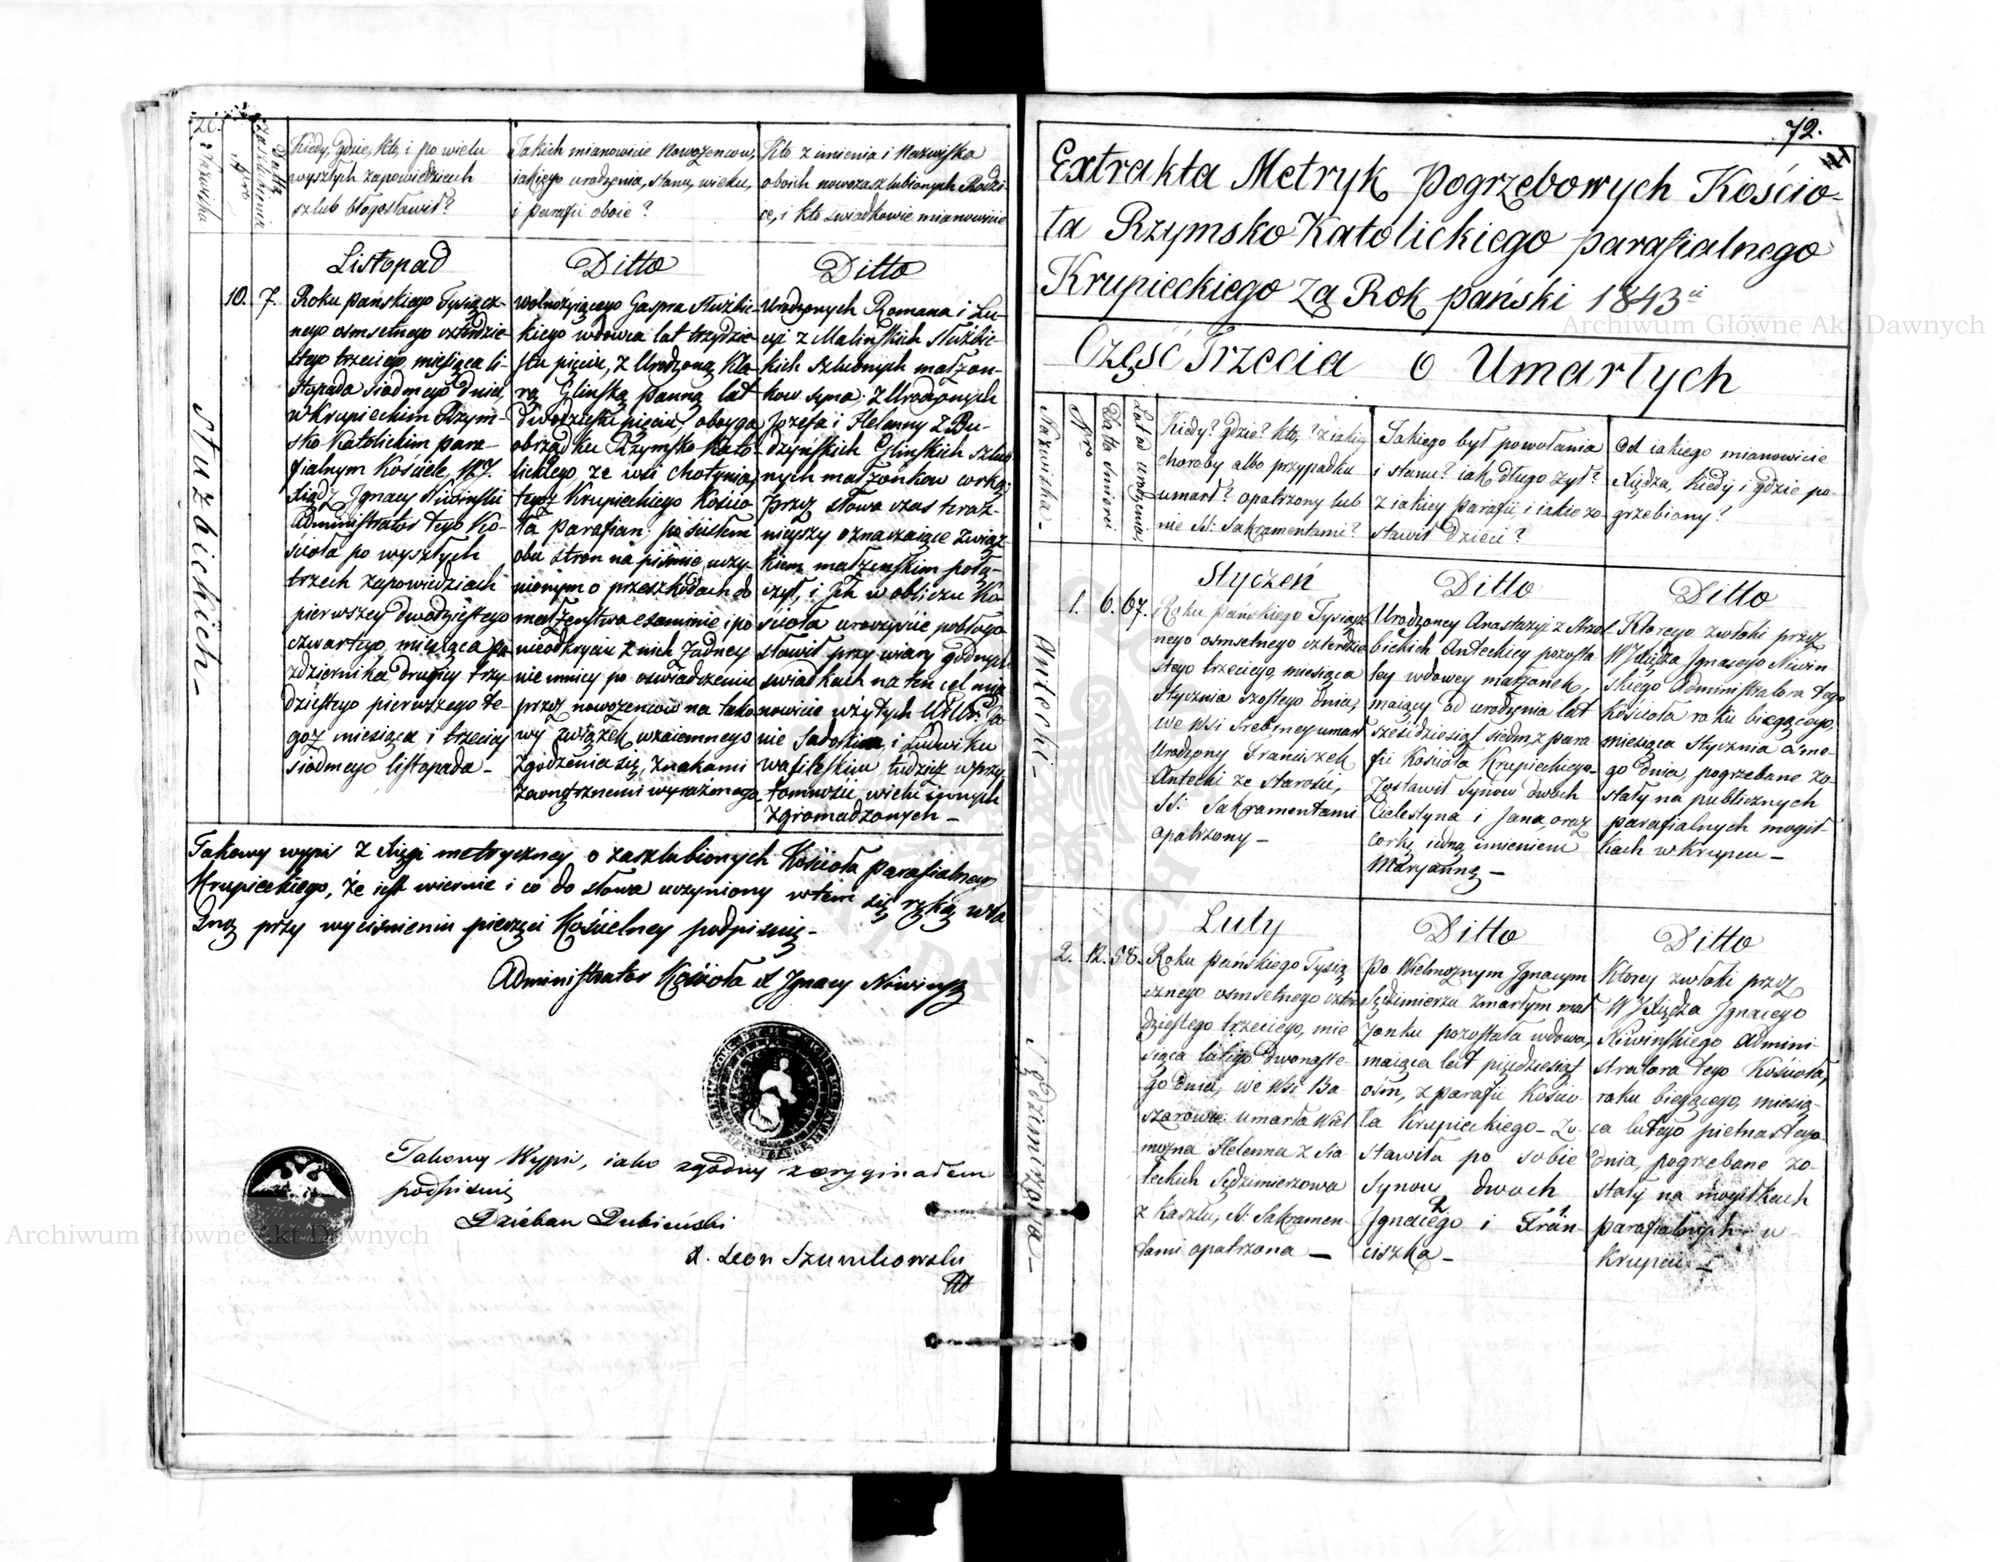 26.
Nazwiska
Nro
Data
zaszlubienia
Kiedy, gdzie, kto, i po wielu
wyszłych zapowiedziach
szlub błogosławił?
Jakich mianowicie Nowożencow,
iakiego urodzenia, stanu, wieku,
i parafii oboie?
Kto z imienia i Nazwiska
oboich nowozaszlubionych Rodzi-
ce, i kto świadkowie mianowicie
Stuzbickich -
10. 7.
Listopad
Roku pańskiego Tysiącz-
nego osmsetnego czterdzie-
stego trzeciego, miesiąca li-
stopada siodmego dnia,
w Krupieckim Rzym-
sko Katolickim para-
fialnym Kościele, W. J.
Xiądz Ignacy Niwinski
Administrator tego Ko-
ścioła po wyszłych
trzech zapowiedziach
pierwszey dwódziestego
czwartego, miesiąca pa-
zdziernika drugiey trzy
dziestego pierwszego te-
goz miesiąca i trzeciey
siodmego listopada -
Ditto
wolnożyiącego Gaspra Służbic-
kiego wdowca lat trzydzie-
stu pięciu, z Urodzoną Kla-
rą Glinską panną lat
dwódziestu pięciu, oboyga
obrządku Rzymsko Kato-
lickiego, ze wsi Chotynia,
tegoż Krupieckiego Kościo-
ła parafian: po ścisłem
obu stron na piśmie uczy-
nionym o przeszkodach do
małżeństwa examinie i po
nieodkryciu z nich żadney
nie mniey po oswiadczeniu
przez nowozencow na tako-
wy związek wzaiemnego
zgodzenia się, znakami
zewnętrznemi wyrażonego
Ditto
Urodzonych Romana i Lu-
cyi z Malinskich Służbic-
kich szlubnych małżon-
kow syna: z Urodzonych
Jozefa i Helenny z Bu-
dzyńskich Glinskich szlub
nych małżonkow corką;
przez słowa czas teraz-
nieyszy oznaczaiące związ-
kiem małżenskim połą-
czył, i Jch w obliczu Ko-
ścioła uroczyście pobłogo-
sławił przy wiary godnych
swiadkach na ten cel mia-
nowicie użytych UrUr: Ja-
nie Sadoskim, i Ludwiku
Wasileskim, tudzież w przy-
tomności wielu innych
zgromadzonych -
Takowy wypis z Xięgi metryczney o zaszlubionych Kościoła parafialnego
Krupieckiego, że iest wiernie i co do słowa uczyniony w tem się ręką wła
sną przy wyciśnieniu pieczęci Kościelney podpisuię -
Administrator Kościoła X Ignacy Niwinski
Takowy Wypis, iako zgodny z oryginałem
podpisuię
Dziekan Dubieński
X. Leon Szumkowski
72.
Extrakta Metryk Pogrzebowych Kościo-
ła Rzymsko Katolickiego parafialnego
Krupieckiego Za Rok pański 1843
Część Trzecia o Umarłych
Nazwiska -
Nro
Data śmierci
Lat od urodzenia,
Kiedy? gdzie? kto,? z iakiey
choroby albo przypadku
umarł? opatrzony lub
nie SS: Sakramentami?
Jakiego był powołania
i stanu? iak długo żył?
z iakiey parafii i iakie zo-
stawił dzieci?
Od iakiego mianowicie
Xiędza, kiedy i gdzie po-
grzebiony?
Antecki -
1. 6. 67.
Styczeń
Roku pańskiego Tysiącz
nego osmsetnego czterdzie-
stego trzeciego, miesiąca
stycznia szostego dnia,
we wsi Srebrney umarł
Urodzony Franciszek
Antecki ze starości,
SS: Sakramentami
opatrzony -
Ditto
Urodzoney Anastazyi z
bickich Anteckiey pozosta
łey wdowey małżonek,
maiący od urodzenia lat
sześćdziesiąt siedm, z para
fii Kościoła Krupieckiego -
Zostawił synow dwoch
Celestyna i Jana, oraz
corkę iedną imieniem
Maryannę -
Ditto
Ktorego zwłoki przez
W J Xiędza Ignacego Niwin
skiego Administratora tego
Kościoła roku bieżącego,
miesiąca stycznia osmo-
go dnia, pogrzebane zo-
stały na publicznych
parafialnych mogił-
kach w Krupcu -
Sędzimirzowa -
2. 12. 58.
Luty
Roku pańskiego Tysią
cznego osmsetnego czter-
dziestego trzeciego, mie
siąca lutego dwonaste-
go dnia, we wsi Ba-
szarowce umarła Wiel
można Helenna z Sia-
teckich Sędzimierzowa
z Kaszlu, SS: Sakramen-
tami opatrzona -
Ditto
Po Wielmożnym Ignacym
Sędzimierzu zmarłym mał
żonku pozostała wdowa,
maiąca lat pięćdziesiąt
osm, z parafii Kościo
ła Krupieckiego - Zo-
stawiła po sobie
synow dwoch
Ignacego i Fran-
ciszka -
Ditto
Ktorey zwłoki przez
W J Xiędza Ignacego
Niwinskiego Admini-
stratora tego Kościoła,
roku bieżącego, miesią-
ca lutego pietnastego
dnia, pogrzebane zo-
stały na mogiłkach
parafialnych w
Krupcu -
Archiwum Główne Akt Dawnych
Archiwum Główne Akt Dawnych